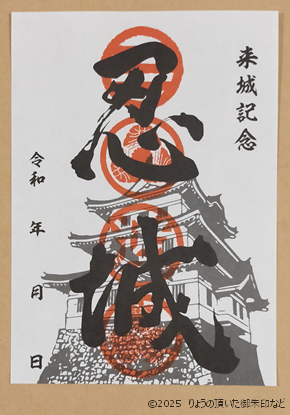 来城記念
忍城
令和 年 月 日
©2025 りょうの頂いた御朱印など